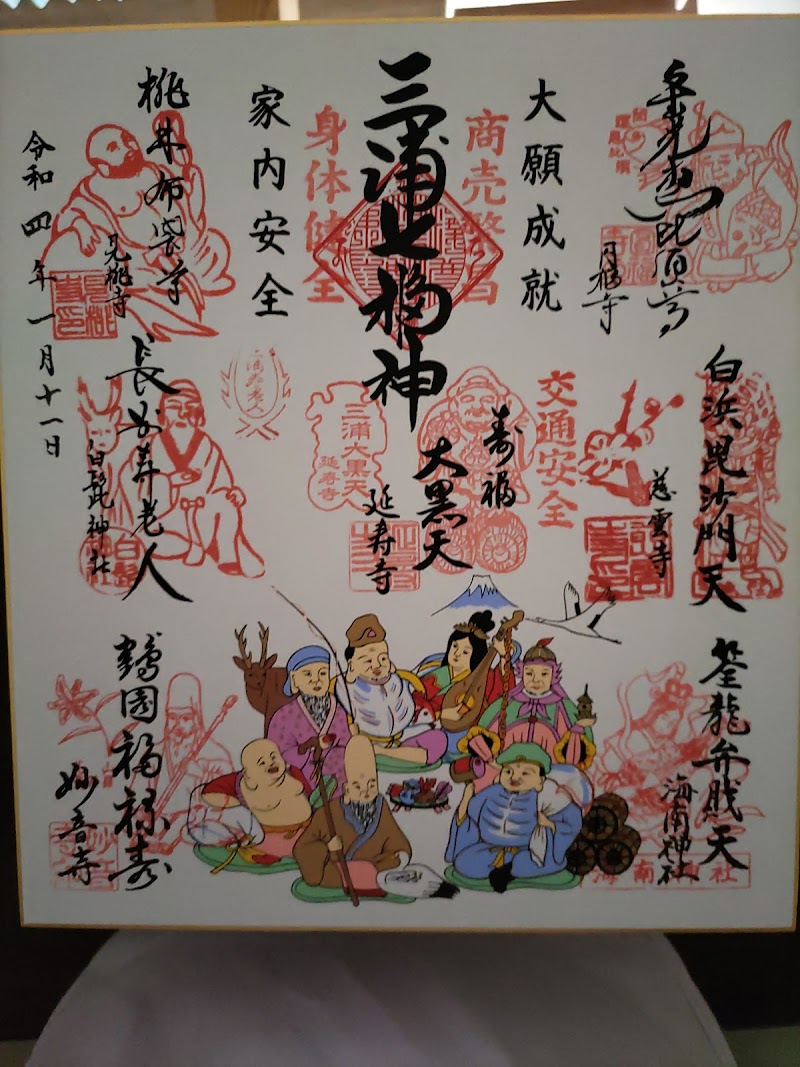 大願成就
三浦七福神
商売繁昌
身体健全
家内安全
円福寺
白浜毘沙門天
慈雲寺
交通安全
筌龍弁財天
海南神社
海南神社
寿福
大黒天
延寿寺
三浦大黒天
延寿寺
桃林布袋尊
見桃寺
長安寿老人
白髭神社
鶴園福禄寿
妙音寺
令和四年一月十一日